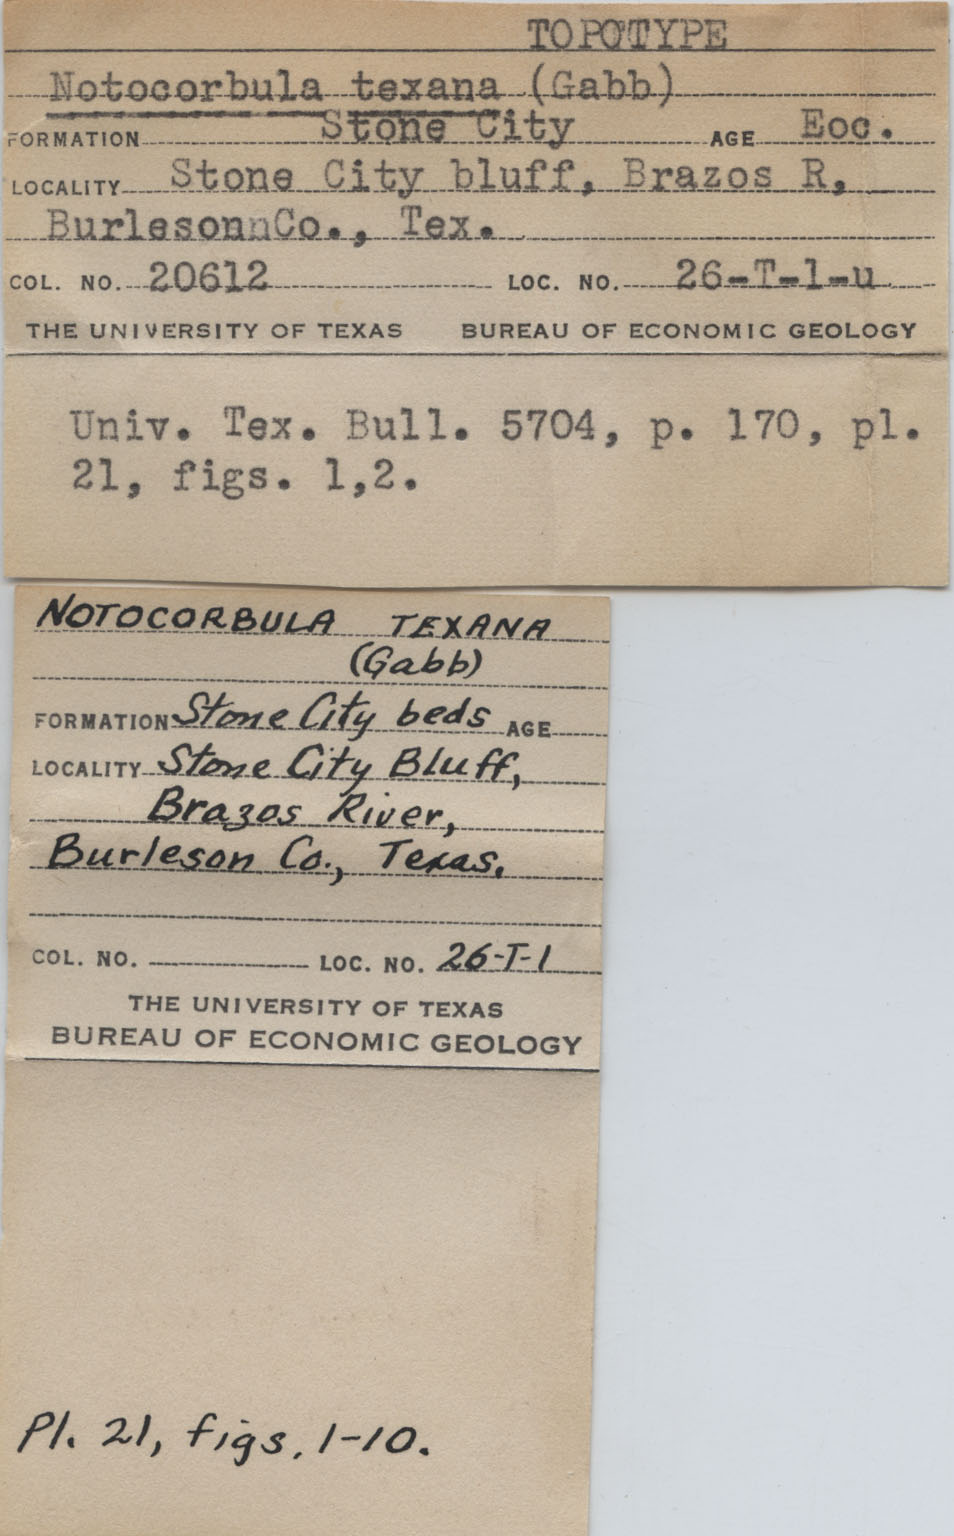 TOPOTYPE
Notocorbula texana (Gabb)
FORMATION Stone City AGE Eoc.
LOCALITY Stone City bluff, Brazos R,
BurlesonnCo., Tex.
COL. NO. 20612 LOC. NO. 26-T-1-u
THE UNIVERSITY OF TEXAS BUREAU OF ECONOMIC GEOLOGY
Univ. Tex. Bull. 5704, p. 170, pl.
21, figs. 1,2.
NOTOCORBULA TEXANA
(Gabb)
FORMATION Stone City beds AGE
LOCALITY Stone City Bluff,
Brazos River,
Burleson Co., Texas.
COL. NO. LOC. NO. 26-T-1
THE UNIVERSITY OF TEXAS
BUREAU OF ECONOMIC GEOLOGY
Pl. 21, figs. 1-10.